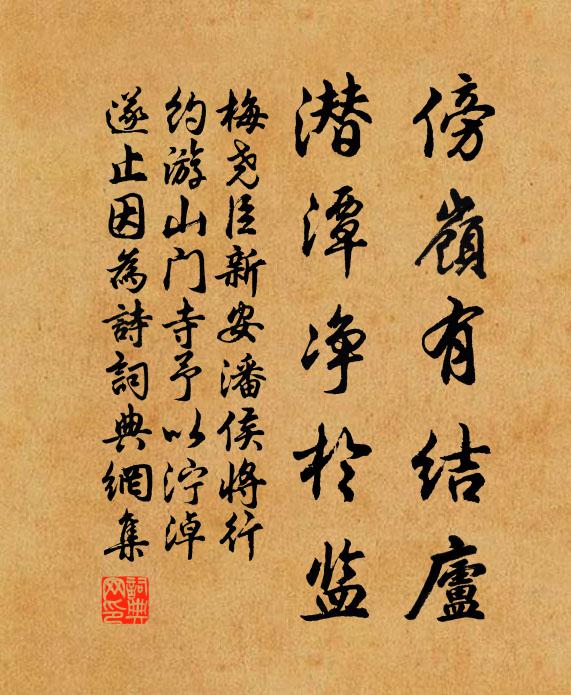 傍嶺有结廬
潜潭净於监
梅尧臣新安潘侯将行
约游山门寺予以泞淖
遂止因為詩詞典網集